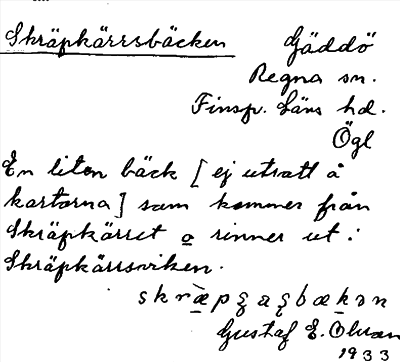 Skräpkärrsbäcken Gäddö
Regna sn.
Finsp. läns hd.
Ögl
En liten bäck [ej utsatt å
kartorna] som kommer från
Skräpkärret o rinner ut i
Skräpkärrsviken.
Gustaf E. Olsson
1933